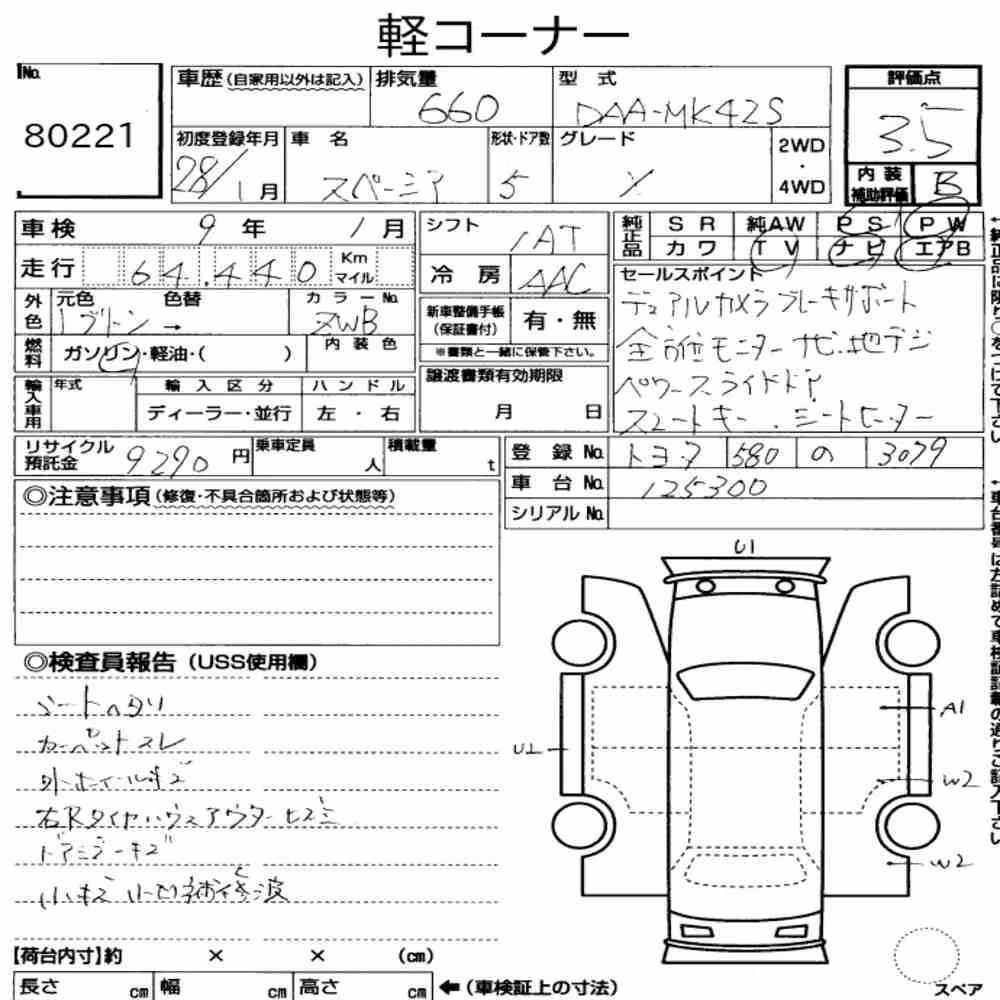 軽コーナー
No. 80221
車歴(自家用以外は記入) 排気量 660 型式 DAA-MK42S 評価点 3.5
初度登録年月 28/1月 車名 スペーシア 形状・ドア数 5 グレード X 2WD・4WD
内装補助評価 B
車検 9年 1月 シフト IAT
走行 64,440 Km マイル 冷房 AAC
外色 元色 色替 カラーNo. ZWB
燃料 ガソリン・軽油・( ) 内装色
新車整備手帳(保証書付) 有・無
※書類と一緒に保管下さい。
輸入車用 年式 輸入区分 ハンドル
ディーラー・並行 左・右
譲渡書類有効期限
月 日
純正品 SR 純AW PS PW
カワ TV ナビ エアB
セールスポイント
デュアルカメラブレーキサポート
全方位モニターナビ.地デジ
パワースライドドア
スマートキー.シートヒーター
リサイクル預託金 9290円 乗車定員 人 積載量 t
登録No. 580 の 3079
車台No. 125300
シリアルNo.
◎注意事項(修復・不具合箇所および状態等)
◎検査員報告(USS使用欄)
シートヘタリ
カーペットスレ
外ホイールキズ
右Rタイヤハウスアウターヒズミ
ドアミラーキズ
小キズ 小凹 補修波
U1
U2
A1
W2
W2
【荷台内寸】約 × × (cm)
長さ cm 幅 cm 高さ cm ←(車検証上の寸法)
スペア
↑純正品に限り○をつけて下さい
↑車台番号は左詰めで車検証記載の通りご記入下さい